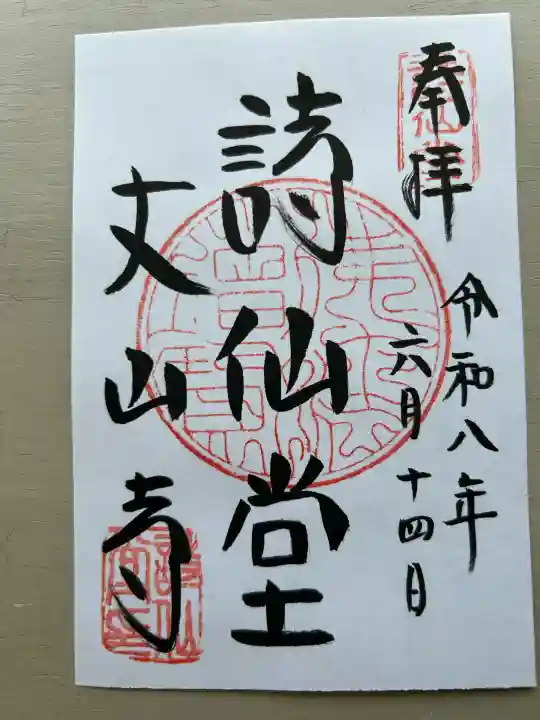 奉拝
令和八年
六月十四日
詩仙堂
丈山寺